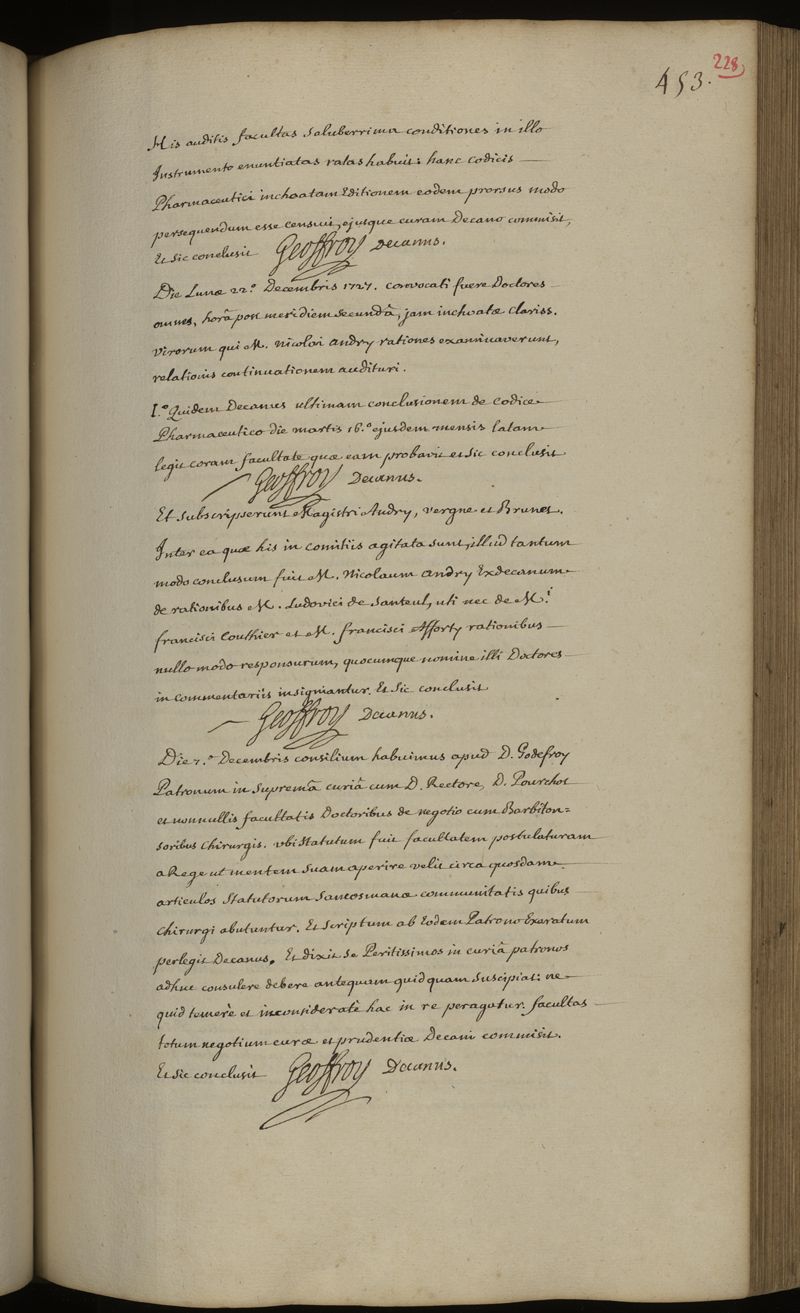 453.
228
His auditis facultas saluberrima conditiones in illo
Instrumento enuntiatas ratas habuit: hanc codicis
Pharmaceutici inchoatam Editionem eodem prorsus modo
persequendum esse censuit, ejusque curam Decano commisit,
Et sic conclusit Geoffroy Decanus.
Die Lunæ 22.° Decembris 1727. convocati fuere Doctores
omnes, horâ post meridiem secundâ, jam inchoatæ clariss.
virorum qui M. Nicolai Andry rationes examinaverunt,
relationis continuationem audituri.
I.° Quidem Decanus ultimam conclusionem de Codice
Pharmaceutico die martis 16.° ejusdem mensis latam
legit coram facultate quæ eam probavit et sic conclusit
Geoffroy Decanus.
Et subscripserunt Magistri Andry, Vergne et Brunet.
Inter ea quæ his in comitiis agitata sunt, illud tantum
modo conclusum fuit M. Nicolaum Andry Exdecanum
de rationibus M. Ludovici de Santeul, uti nec de M.i
francisci Couthier et M. francisci Afforty rationibus
nullo modo responsurum, quocumque nomine illi Doctores
in commentariis insigniantur. Et sic conclusit
Geoffroy Decanus.
Die 7.° Decembris consilium habuimus apud D. Godefroy
Patronum in supremâ curiâ cum D. Rectore, D. Pourchot
et nonnullis facultatis Doctoribus de negotio cum Barbiton=
soribus Chirurgis. ubi statutum fuit facultatem postulaturam
a Rege ut mentem suam aperire velit circa quosdam
articulos statutorum sancosmanæ communitatis quibus
Chirurgi abutuntur. Et scriptum ab Eodem Patrono Exaratum
perlegit Decanus. Et dixit se Peritissimos in curiâ patronos
adhuc consulere debere antequam quidquam suscipiat: ne
quid temerè et inconsideratè hac in re peragatur. facultas
totum negotium curæ et prudentiæ Decani commisit.
Et sic conclusit Geoffroy Decanus.